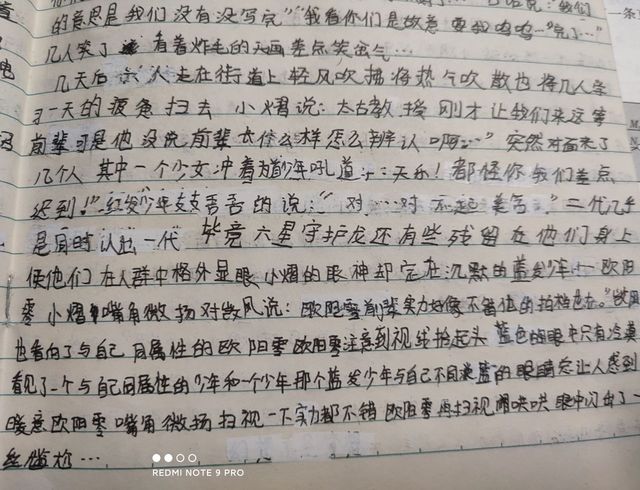 的意思是我们没有没写完""我看你们是故意要我呜呜…完了…"
几人笑了 看着炸毛的天画差点笑岔气…
几天后六人走在街道上轻风吹拂将热气吹散也将几人亲
一天的疲惫扫去 小熠说:太古教授刚才让我们来这等
前辈可是他没说前辈长什么样怎么辨认啊…"突然对面来了
几个人 其中一个少女冲着为首少年吼道:天乐!都怪你我们差点
迟到!"红发少年支支吾吾的说:"对…对不起美舌。"二代几乎
是同时认出一代 毕竟六星守护龙还有些残留在他们身上
使他们在人群中格外显眼小熠的眼神却定在沉默的蓝发少年—欧阳
零 小熠嘴角微扬对微风说:欧阳零前辈实力好像不错他的拍档也在。"
也看向了与自己同属性的欧阳零欧阳零注意到视线抬起头 蓝色的眼中只有冷漠
看见了一个与自己同属性的少年和一个少年那个蓝发少年与自己不同淡蓝的眼睛总让人感到
暖意欧阳零嘴角微扬扫视一下实力都不错 欧阳零再扫视闹哄哄 眼中闪出了一
丝尴尬…
REDMI NOTE 9 PRO